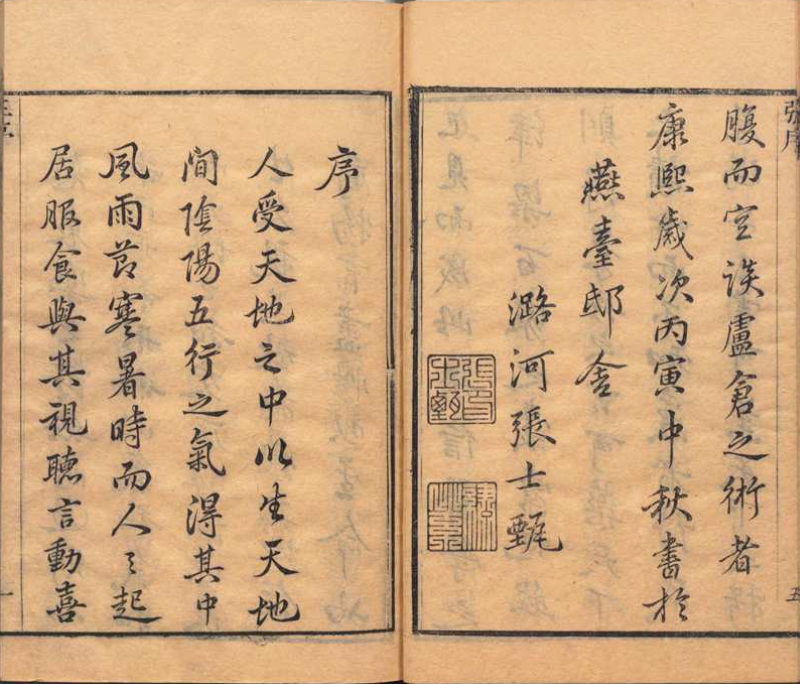 張序
腹而空談盧倉之術者
康熙歲次丙寅中秋書於
燕臺邸舍
潞河張士甄
五
序
人受天地之中以生天地
間陰陽五行之氣得其中
風雨節寒暑時而人々起
居服食與其視聽言動喜
一